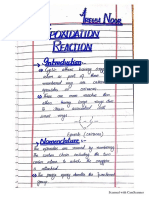 Areeba Noor
EPOXIDATION
REACTION
Introduction:
Cyclic ethers having oxygen
atoms as part of three
membered ring are called
epoxides or oxiranes.
are more reactive than
ethers having large rings
due to strain associated
with three membered
rings.
O
-C-C-
Epoxide (oxirane)
Nomenclature:
The epoxides are named by numbering
the carbon chain including the two
carbon atoms to which the oxygen
atoms are attached.
The prefix epoxy denotes the functional
group.
Scanned with CamScanner